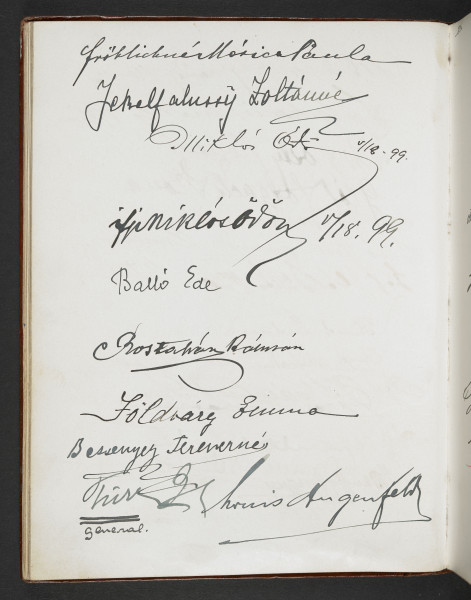 Fröhlichné Móricz Paula
Jekelfalussy Zoltánné
Miklós Ödön V/18-99.
ifj Miklós Ödön V/18. 99.
Balló Ede
Földváry Emma
Bessenyey Ferencné
Türr
Louis Angenfeld
general.